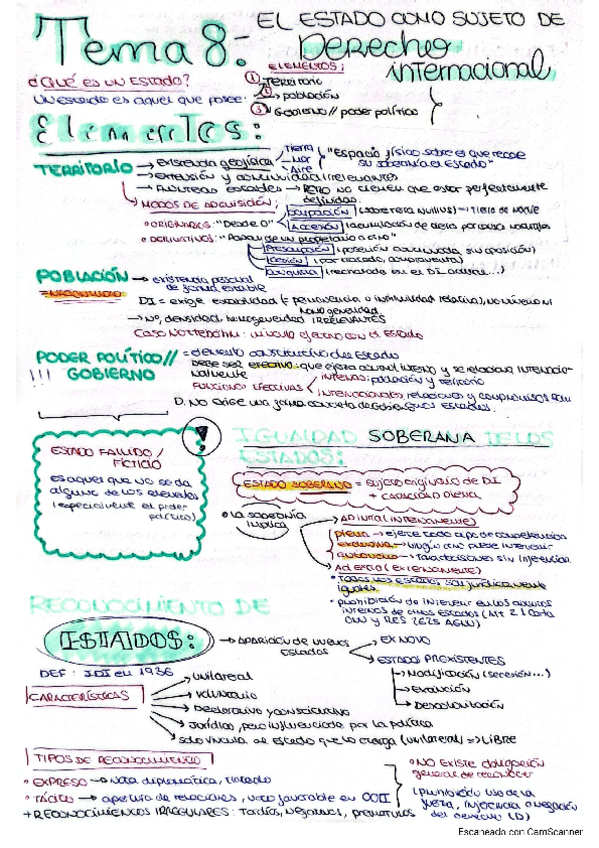 Tema 8: EL ESTADO COMO SUJETO DE
Derecho
internacional
¿QUÉ ES UN ESTADO?
Un estado es aquel que posee:
ELEMENTOS:
① Territorio
② población
③ Gobierno // poder político
Elementos:
TERRITORIO → Existencia geofísica
Tierra
Mar
Aire
"Espacio físico sobre el que recae
su soberanía el Estado"
→ Extensión y continuidad irrelevantes
→ Fronteras estables → Pero no tienen que estar perfectamente
definidas.
MODOS DE ADQUISICIÓN:
• ORIGINARIOS: "Desde 0"
Ocupación (sobre tierra nullius) → Tierra de nadie
Accesión (acumulación de tierra por causas naturales)
• DERIVATIVOS: "Pasan de un propietario a otro"
Prescripción (posesión continuada, sin oposición)
Cesión (por tratado, compraventa)
Conquista (rechazada en el DI actual...)
POBLACIÓN → existencia personal
de forma estable
= NACIONALIDAD
DI = exige estabilidad (= permanencia o continuidad relativa), no número ni
homogeneidad
→ Nº, densidad, homogeneidad IRRELEVANTES
CASO NOTTEBOHM: vínculo efectivo con el Estado
PODER POLÍTICO //
GOBIERNO
!!!
= elemento constitutivo del Estado
Debe ser efectivo: que ejerza control interno y se relacione internacio-
nalmente
FUNCIONES EFECTIVAS
INTERNAS: población y territorio
INTERNACIONALES: relaciones y compromisos
D. NO EXIGE una forma concreta de Gobierno
ESTADO FALLIDO /
FICTICIO
es aquel que no se da
alguno de los elementos
(especialmente el poder
político)
!
IGUALDAD SOBERANA DE LOS
ESTADOS:
ESTADO SOBERANO = sujeto originario de DI
+ capacidad plena
• La soberanía
implica
Ad intra (internamente)
plena → ejerce todo tipo de competencias
exclusiva → ningún otro puede intervenir
autónoma → toma decisiones sin injerencias
Ad extra (externamente)
• Todos los estados son jurídicamente
iguales
• prohibición de intervenir en los asuntos
internos de otros estados (Art 2.1 Carta
ONU y RES 2625 AGNU)
RECONOCIMIENTO DE
ESTADOS:
→ APARICIÓN DE NUEVOS
ESTADOS
EX NOVO
ESTADOS PREEXISTENTES
→ Modificación (secesión...)
→ Evolución
→ Descolonización
DEF: IDI en 1936
CARACTERÍSTICAS
unilateral
Voluntario
Declarativo y constitutivo
Jurídico, pero influenciado por la política
solo vincula al estado que lo otorga (unilateral) => LIBRE
TIPOS DE RECONOCIMIENTO
• EXPRESO → nota diplomática, tratado
• TÁCITO → apertura de relaciones, voto favorable en OOII
+ RECONOCIMIENTOS IRREGULARES: Tardíos, negativos, prematuros
• NO EXISTE obligación
general de reconocer
(prohibición uso de la
fuerza, injerencia o negación
del derecho LD)
Escaneado con CamScanner